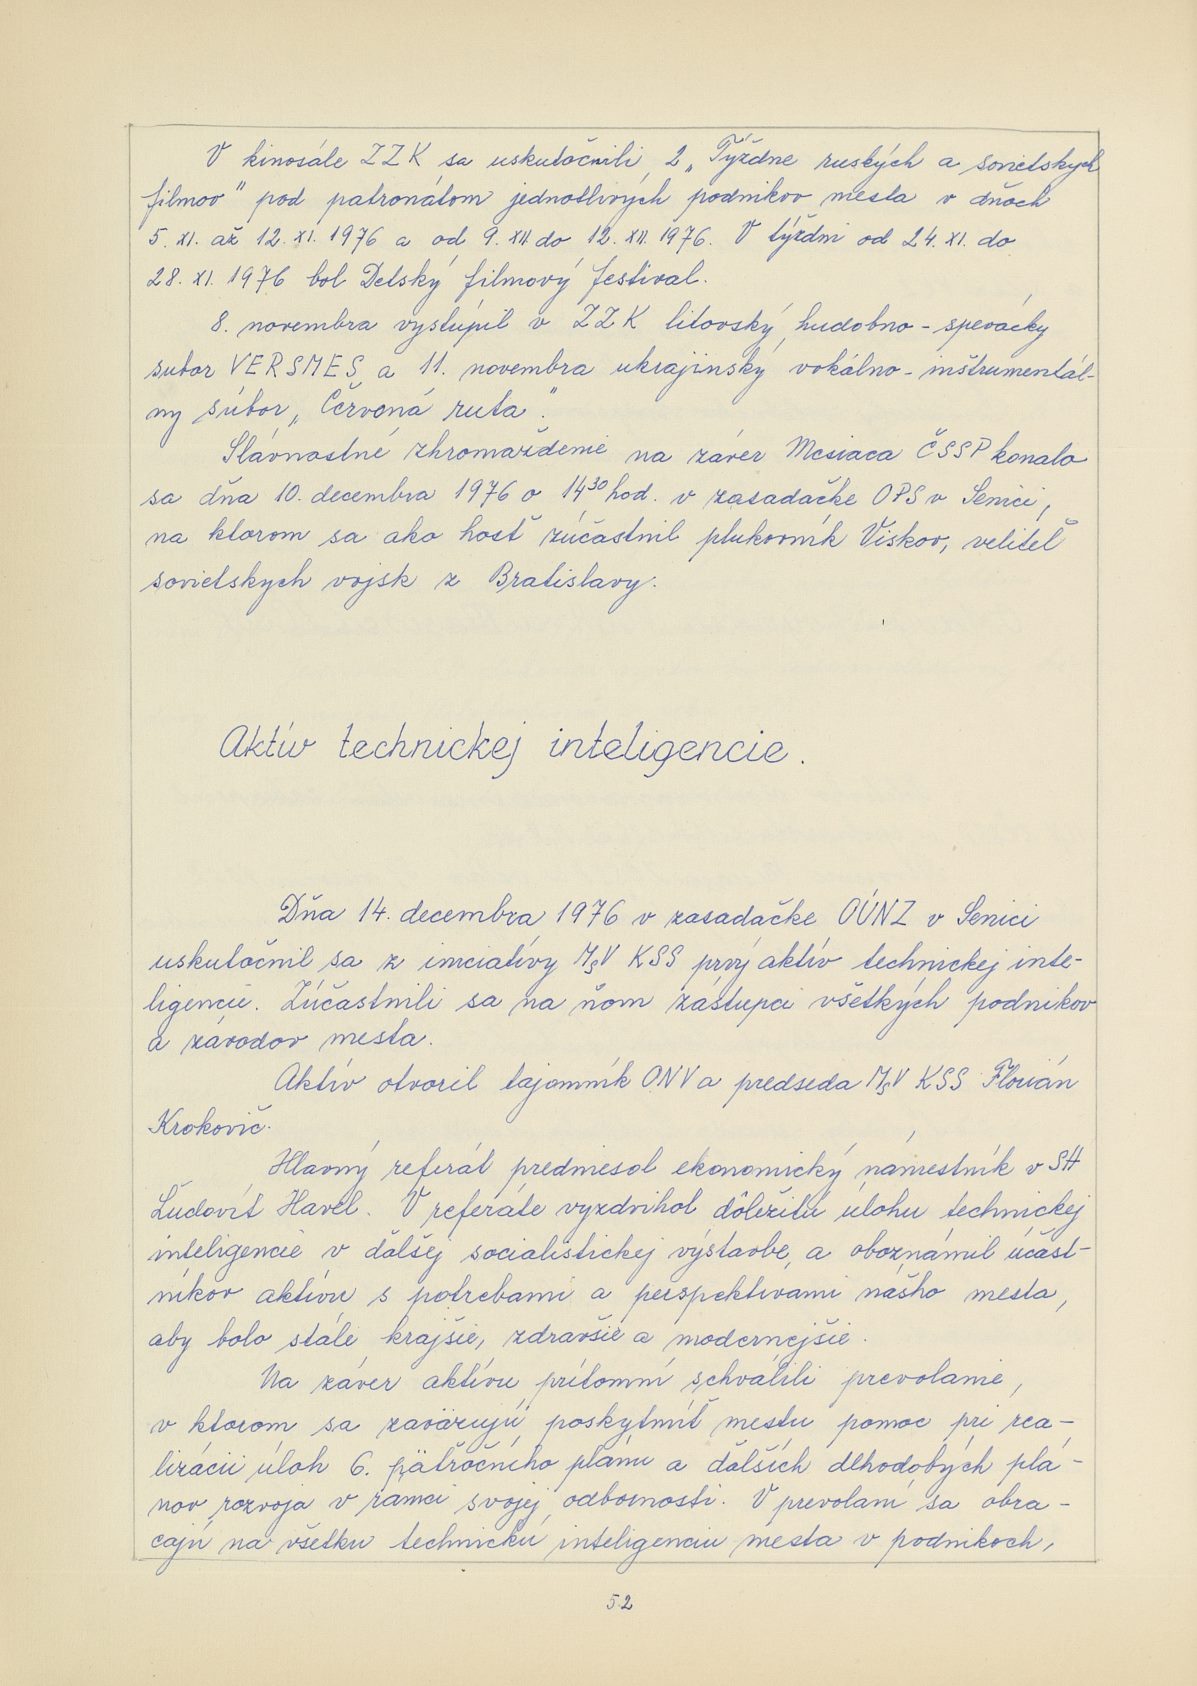 V kinosále ZZK sa uskutočnili 2 „Týždne ruských a sovietskych
filmov" pod patronátom jednotlivých podnikov mesta v dňoch
5. XI. až 12. XI. 1976 a od 9. XII. do 12. XII. 1976. V týždni od 24. XI. do
28. XI. 1976 bol Detský filmový festival.
8. novembra vystúpil v ZZK litovský hudobno-spevácky
subor VERSMES a 11. novembra ukrajinský vokálno-inštrumentál-
ny súbor „Červoná ruta".
Slávnostné zhromaždenie na záver Mesiaca ČSSP konalo
sa dňa 10. decembra 1976 o 14³⁰ hod. v zasadačke OPS v Senici,
na ktorom sa ako hosť zúčastnil plukovník Viskov, veliteľ
sovietskych vojsk z Bratislavy.
Aktív technickej inteligencie.
Dňa 14. decembra 1976 v zasadačke OÚNZ v Senici
uskutočnil sa z iniciatívy MsV KSS prvý aktív technickej inte-
ligencie. Zúčastnili sa na ňom zástupci všetkých podnikov
a závodov mesta.
Aktív otvoril tajomník ONV a predseda MsV KSS Florián
Krokovič.
Hlavný referát predniesol ekonomický námestník v SH
Ľudovít Havel. V referáte vyzdvihol dôležitú úlohu technickej
inteligencie v ďalšej socialistickej výstavbe, a oboznámil účast-
níkov aktívu s potrebami a perspektívami nášho mesta,
aby bolo stále krajšie, zdravšie a modernejšie.
Na záver aktívu prítomní schválili prevolanie,
v ktorom sa zaväzujú poskytnúť mestu pomoc pri rea-
lizácii úloh 6. päťročného plánu a ďalších dlhodobých plá-
nov rozvoja v rámci svojej odbornosti. V prevolaní sa obra-
cajú na všetku technickú inteligenciu mesta v podnikoch,
52